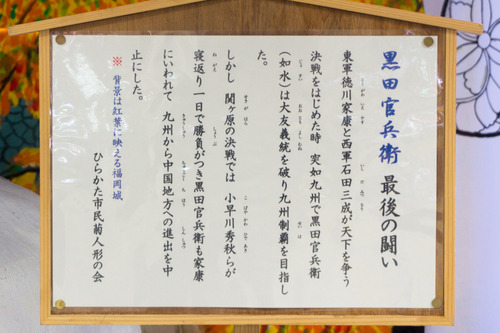 黒田官兵衛 最後の闘い
東軍徳川家康と西軍石田三成が天下を争う
決戦をはじめた時 突如九州で黒田官兵衛
(如水)は大友義統を破り九州制覇を目指し
た。
しかし 関ヶ原の決戦では 小早川秀秋らが
寝返り一日で勝負がつき黒田官兵衛も家康
にいわれて 九州から中国地方への進出を中
止にした。
※ 背景は紅葉に映える福岡城
ひらかた市民菊人形の会